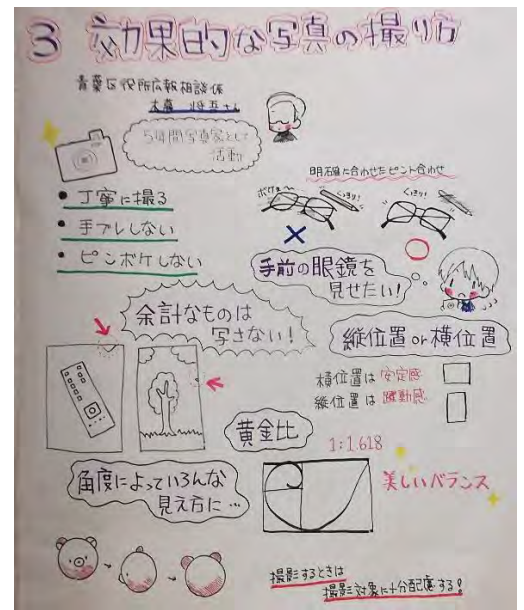 3 効果的な写真の撮り方
青葉区役所広報相談係
5年間写真家として
活動
・丁寧に撮る
・手ブレしない
・ピンボケしない
明確に合わせたピント合わせ
ボケボケ〜
くっきり!
くっきり!
×
○
手前の眼鏡を
見せたい!
余計なものは
写さない!
縦位置or横位置
横位置は安定感
縦位置は躍動感
黄金比
1:1.618
美しいバランス
角度によっていろんな
見え方に…
撮影するときは
撮影対象に十分配慮する!